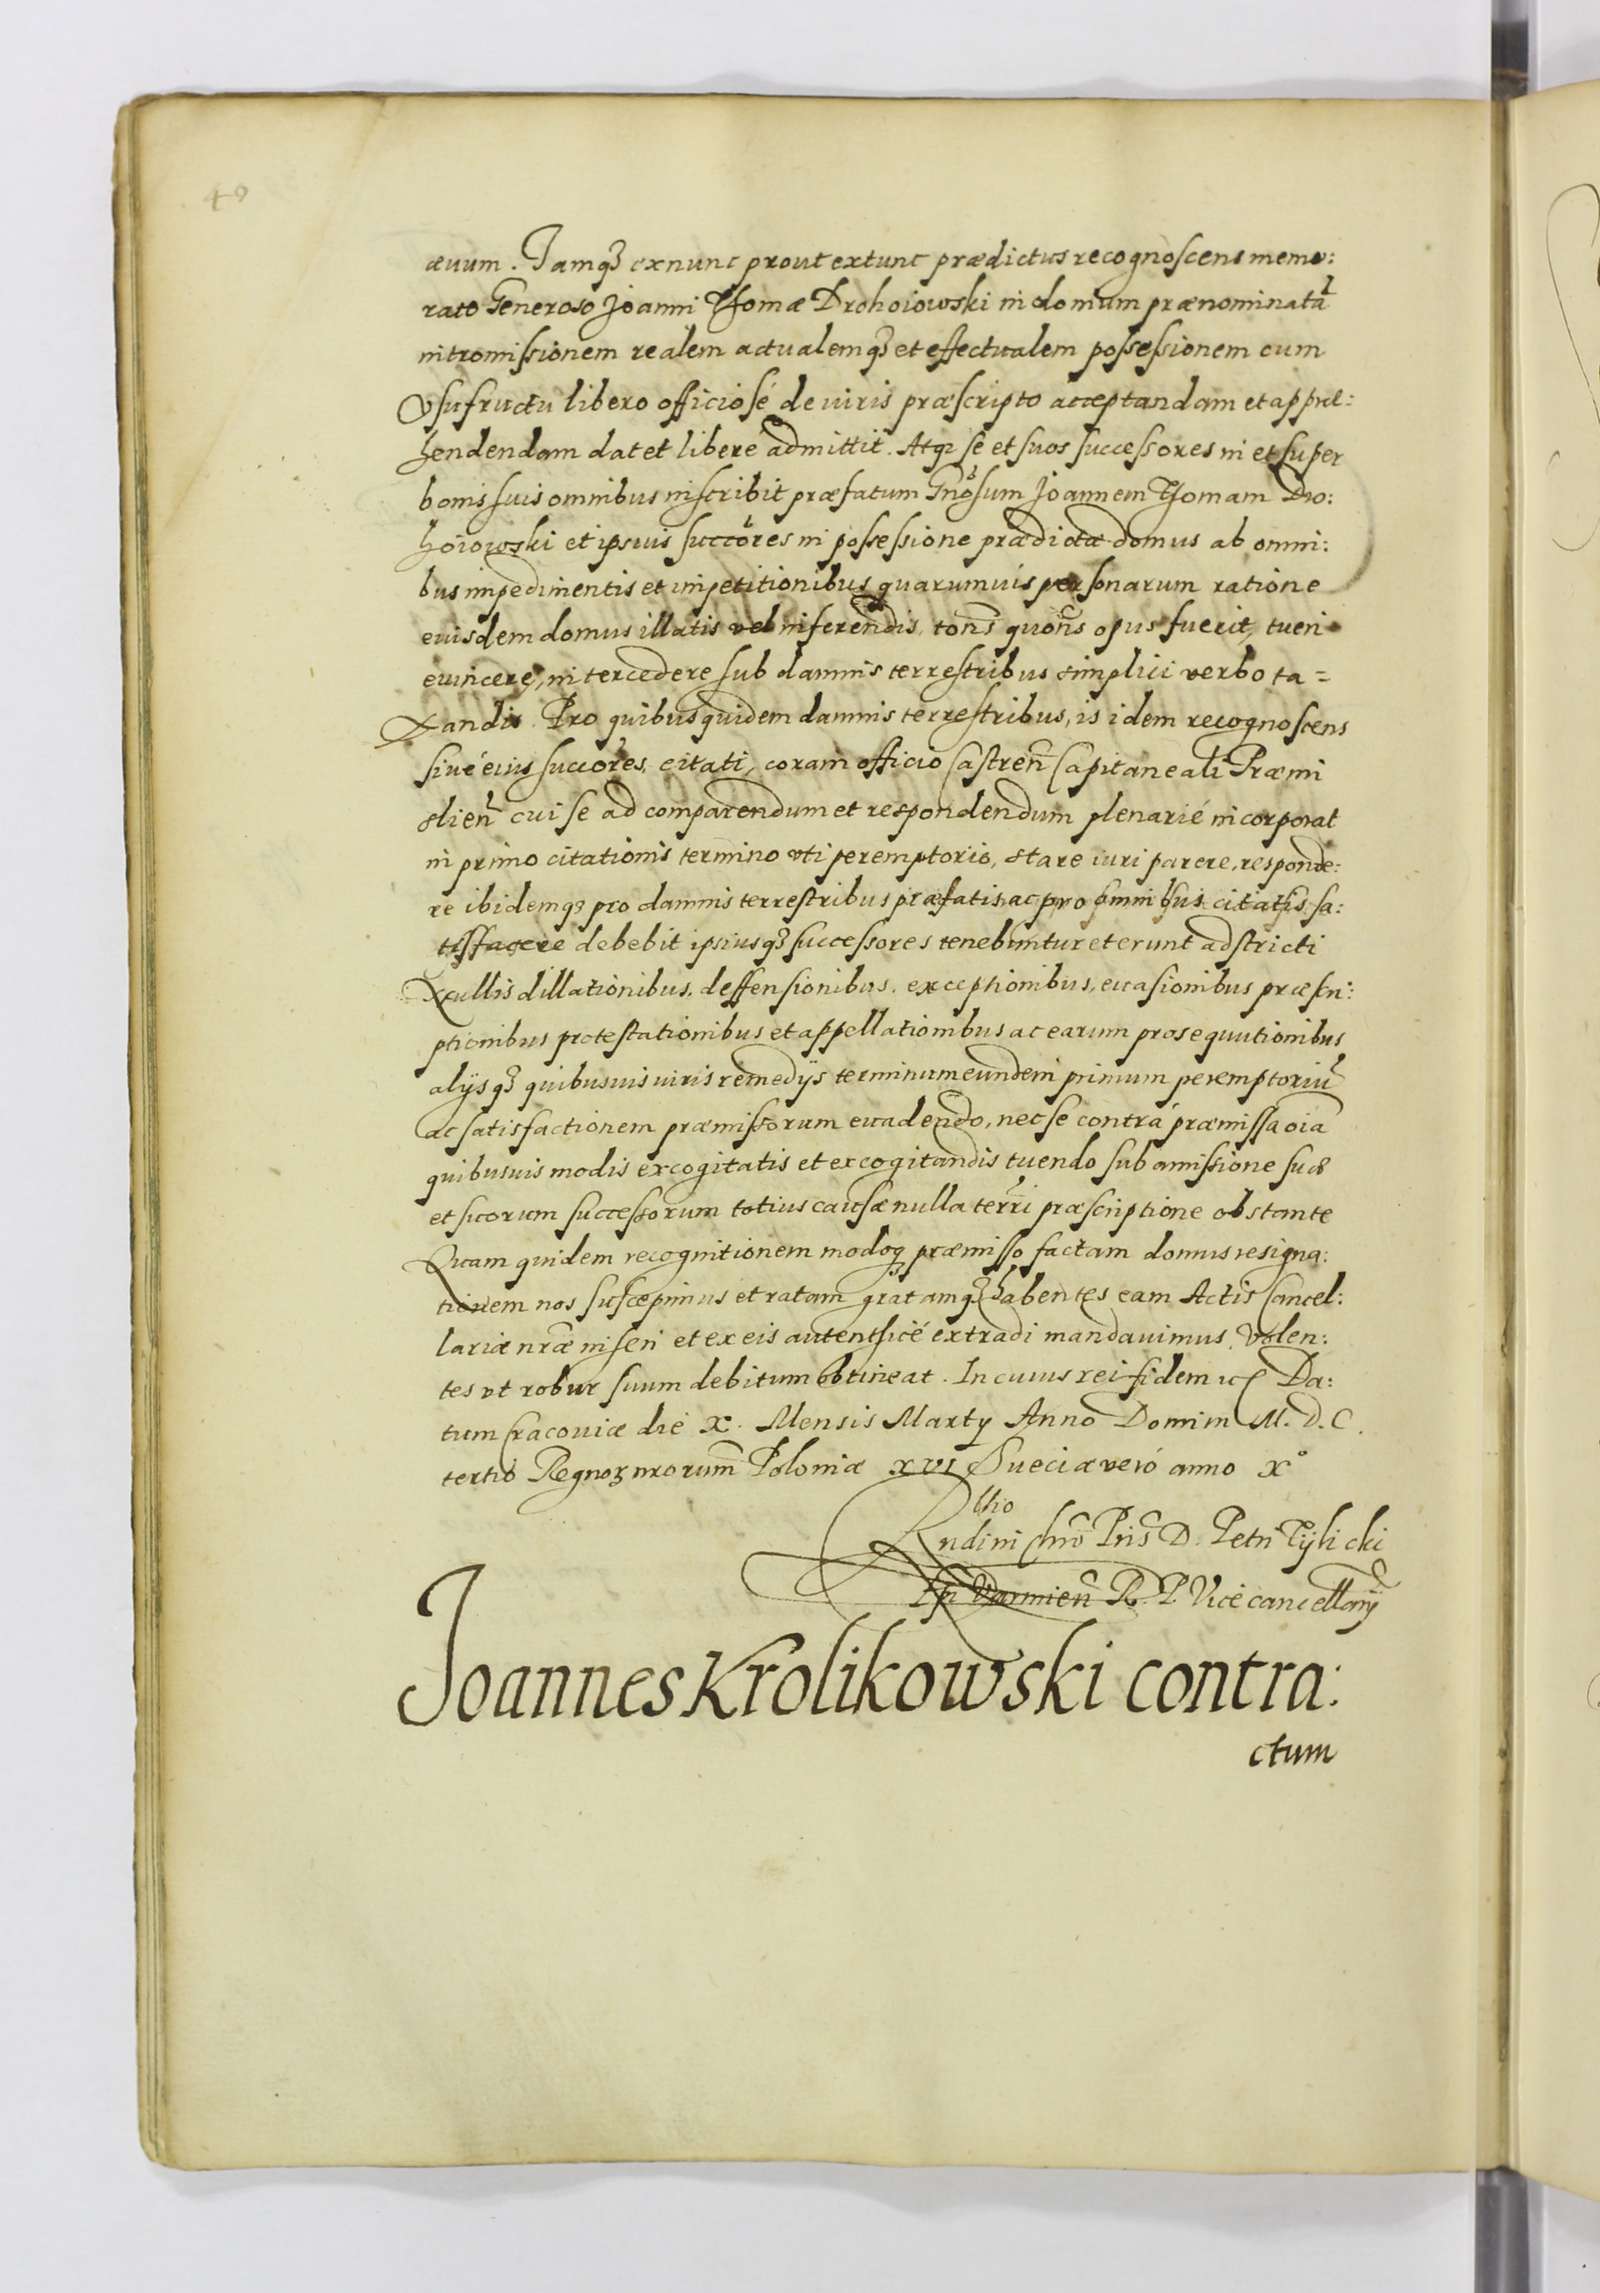 40
æuum. Iamq3 exnunc prout extunc prædictus recognoscens memo:
rato Generoso Joanni Thomæ Drohoiowski in domum prænominatã
intromissionem realem actualemq3 et effectualem possessionem cum
vsufructu libero officiosé de iuris præscripto acceptandam et appræ:
hendendam dat et libere admittit. Atq3 se et suos successores in et super
bonis suis omnibus inscribit præfatum Gnõsum Joannem Thomam Dro:
hoiowski et ipsius succõres in possessione prædictæ domus ab omni:
bus impedimentis et impetitionibus quarumuis personarum ratione
eiusdem domus illatis vel inferendis, toñs quoñs opus fuerit, tueri
euincere, intercedere sub damnis terrestribus simplici verbo ta=
xandis. Pro quibus quidem damnis terrestribus, is idem recognoscens
siué eius succõres, citati, coram officio Castreñ Capitaneali Præmi
slieñ cui se ad comparendum et respondendum plenarié incorporat
in primo citationis termino vti peremptorio, stare iuri parere, responde:
re ibidemq3 pro damnis terrestribus præfatis, ac pro omnibus citatis sa:
tisfacere debebit ipsiusq3 successores tenebuntur et erunt adstricti
Nullis dillationibus, deffensionibus, exceptionibus, euasionibus præscri:
ptionibus protestationibus et appellationibus ac earum prosequutionibus
alijsq3 quibusuis iuris remedijs terminum eundem primum peremptoriũ
ac satisfactionem præmissorum euadendo, nec se contrá præmissa oĩa
quibusuis modis excogitatis et excogitandis tuendo sub amissione suæ
et suorum successorum totius causæ nulla terrĩ præscriptione obstante
Quam quidem recognitionem modoq3 præmisso factam domus resigna:
tionem nos suscepimus et ratam gratamq3 habentes eam Actis Cancel:
lariæ nrãe inseri et ex eis autenthicé extradi mandauimus, Volen:
tes vt robur suum debitum obtineat. In cuius rei fidem Da:
tum Cracouiæ die X. Mensis Martij Anno Domini M. D. C.
tertio Regnor3 nrorum Poloniæ XVI Sueciæ veró anno X°
Rllio
Rndini Chrõ Pris D. Petri Tylicki
Epi Varmieñ R. P. Vicecancellarij
Joannes Krolikowski contra:
ctum